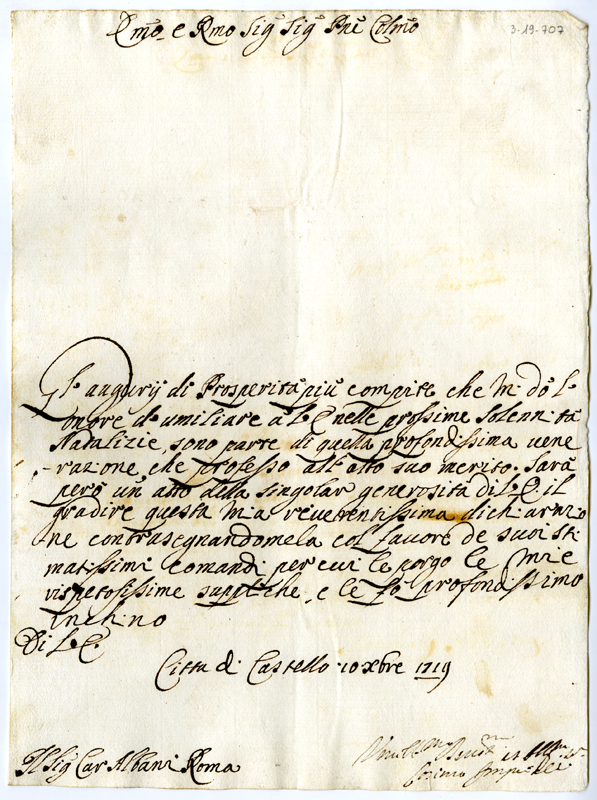 Emo e Rmo Sig Sig Pñe Colmo
3-19-707
Gl' augurij di Prosperità più compite che m do l'
onore d umiliare a l' E nelle prossime Solennità
Natalizie, sono parte di quella profondissima vene
razione, che professo all' alto suo merito. Sarà
però un atto della singolar generosità di V. E. il
gradire questa mia reverentissima dichiarazio
ne contrasegnandomela col favore de suoi sti
matissimi comandi per cui le porgo le mie
rispetosissime suppliche, e le fò profondissimo
Inchino
Di V. E.
Citta di Castello 10 Xbre 1719
Il Sig Car Albani Roma